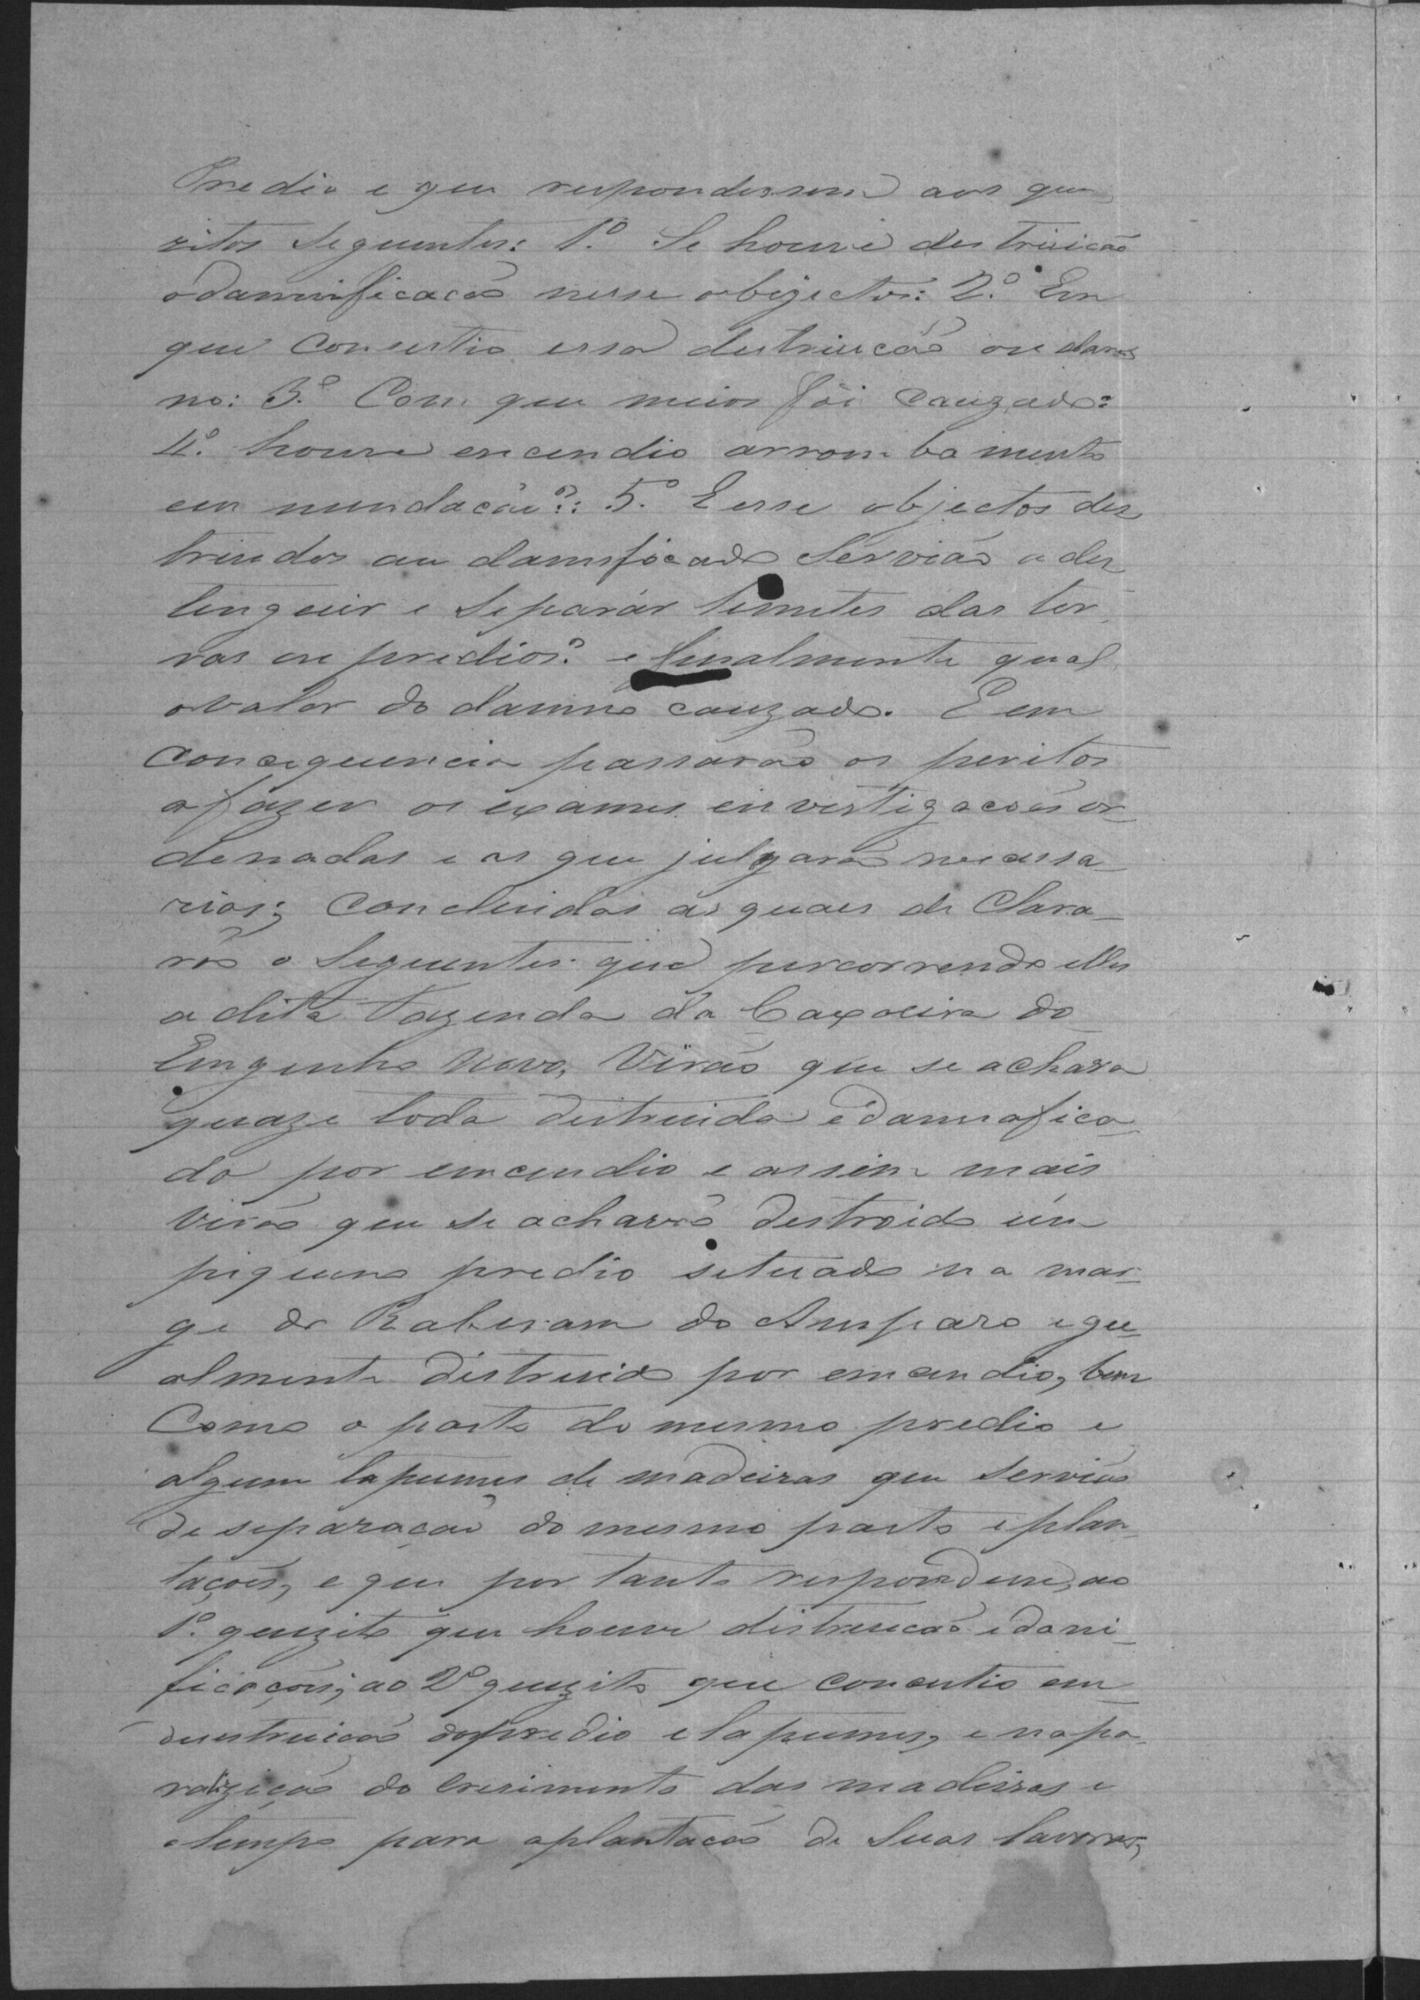 Predio e que respondessem aos que
zitos seguentes: 1.º Se houve destruicão
odamnificacão nesse obijectos: 2.º Em
que consestio essa destruicão ou dam
no: 3.º Com que meios foi cauzado:
4.º houve encendio arrombamento
en nundacão?: 5.º E esse objectos des
truidos au damificado Servião a des
tenguir e separar limites das ter
ras ou predios? e finalmente qual
ovalor do damno cauzado. E em
concequencia passarão os peritos
afazer os exames envestigacões or
denadas e as que julgarão necessa
rias; concluidas as quaes de Clara
rão o Seguentes que percorrendo elles
a dita Fazenda da Caxoeira do
Emgenho Novo, Virão que se achava
quaze toda destruida e damnafica
da por emcendio e assim mais
Virão que se acharrá destroido um
piqueno predio setuado na mar
ge do Raberam do Amparo egu
almente distruido por emcendio, bem
Como o pasto do mesmo predio e
algum tapumes de madeiras que servião
de separação do mesmo pasto e plan
tações, e que por tanto respondem, ao
1.º quezito que houve distruicão e dani
ficações; ao 2.º quezito que concentio em
destruicão dopredio e tapumes, e napa
ralizicão do Cresimento das madeiras e
tempo para aplantacão de Suas lavoras,